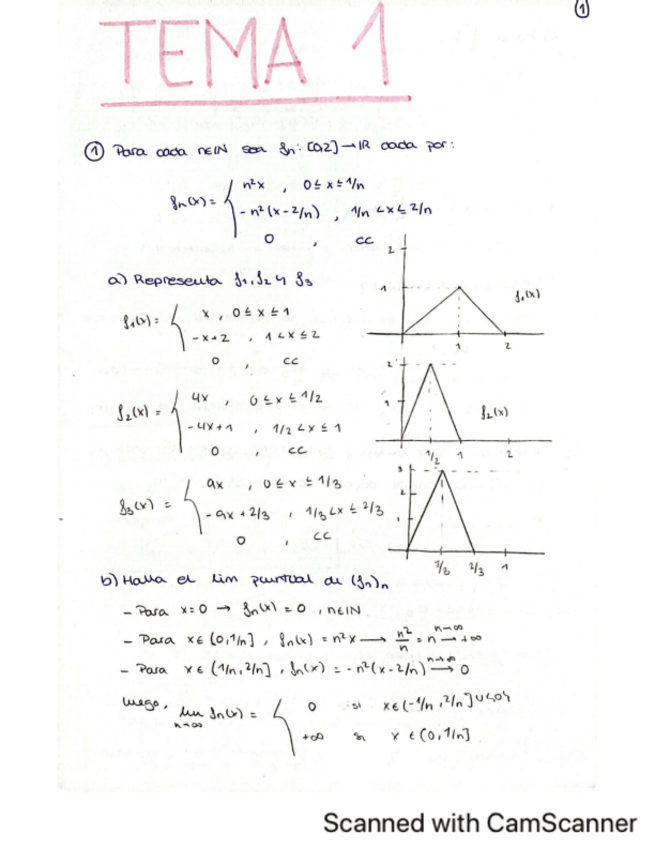 1
TEMA 1
① Para cada n∈IN sea fn: [0,2] → IR dada por:
fn(x) = { n²x , 0 ≤ x ≤ 1/n
-n²(x-2/n) , 1/n < x ≤ 2/n
0 , cc
a) Representa f1, f2 y f3
f1(x) = { x , 0 ≤ x ≤ 1
-x+2 , 1 < x ≤ 2
0 , cc
2
1
1
2
f1(x)
f2(x) = { 4x , 0 ≤ x ≤ 1/2
-4x+1 , 1/2 < x ≤ 1
0 , cc
2
1
1/2
1
2
f2(x)
f3(x) = { 9x , 0 ≤ x ≤ 1/3
-9x + 2/3 , 1/3 < x ≤ 2/3
0 , cc
3
2
1
1/3
2/3
1
b) Halla el lim puntual de (fn)n
- Para x=0 → fn(x) = 0 , n∈IN
- Para x∈(0,1/n] , fn(x) = n²x → n²/n = n n→∞ → +∞
- Para x∈(1/n, 2/n] , fn(x) = -n²(x-2/n) n→∞ → 0
Luego, lim n→∞ fn(x) = { 0 si x∈(-1/n, 2/n]∪{0}
+∞ si x∈(0,1/n]
Scanned with CamScanner